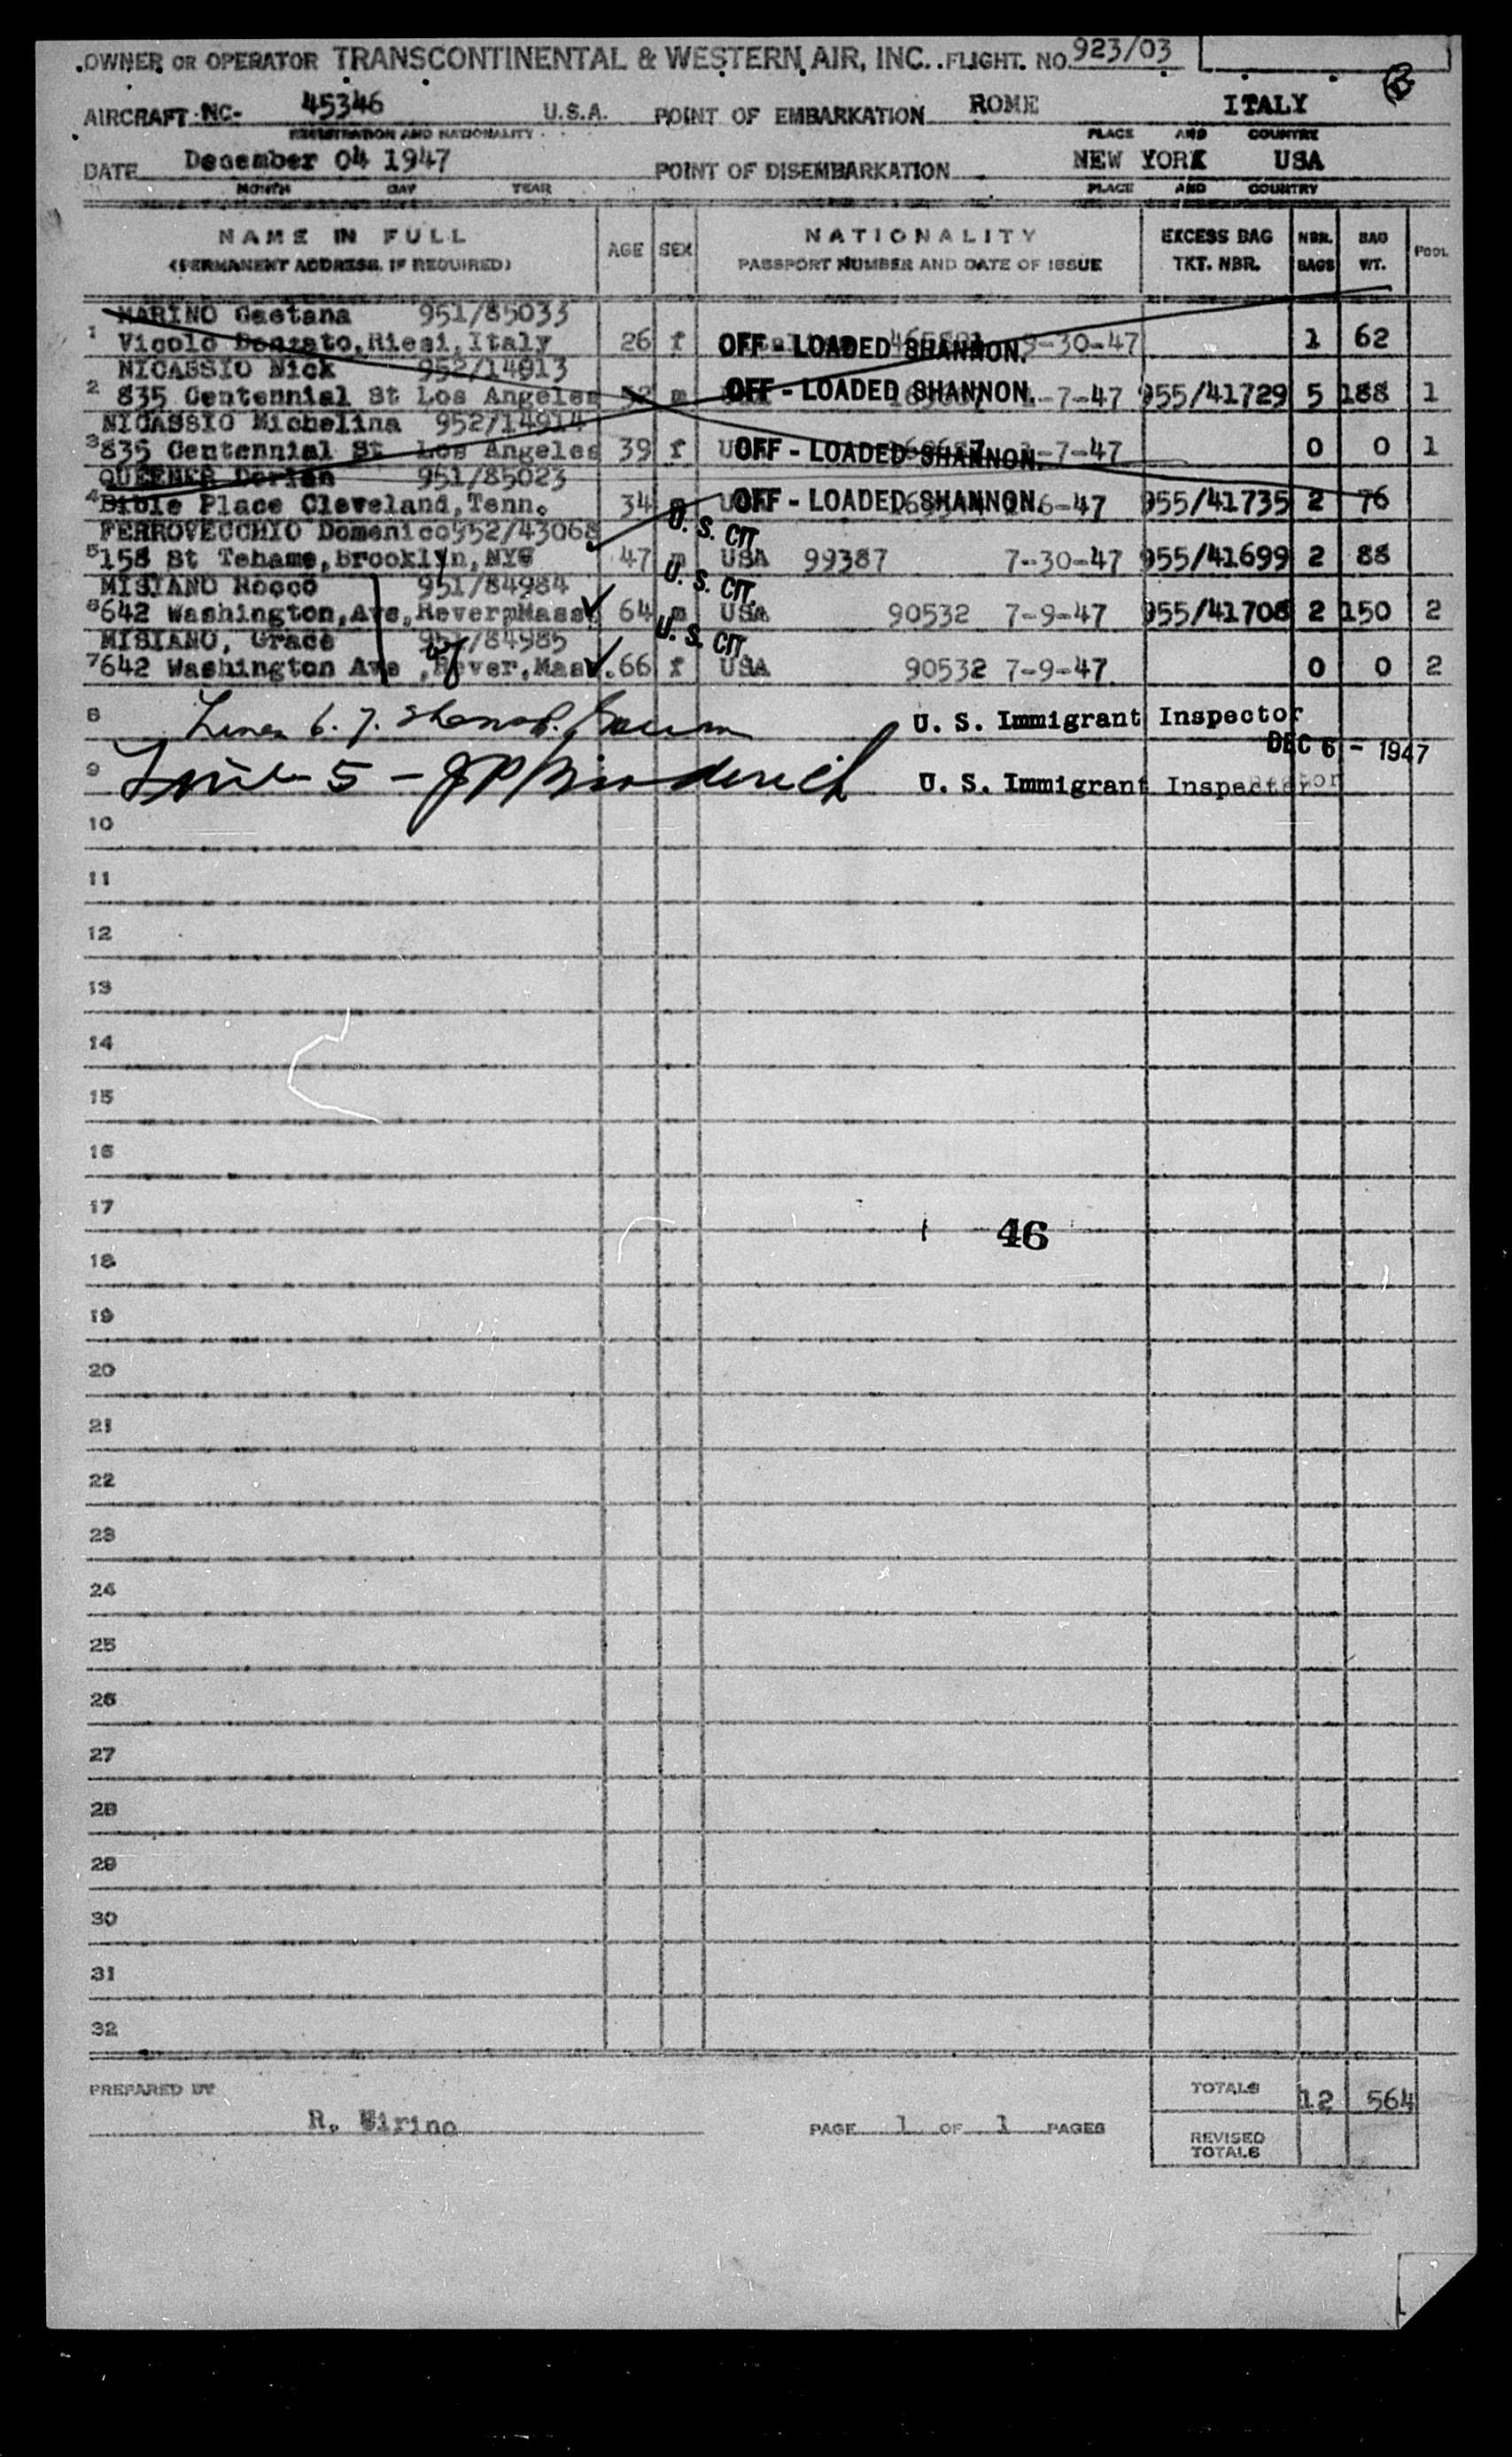 OWNER OR OPERATOR TRANSCONTINENTAL & WESTERN AIR, INC. FLIGHT. NO. 923/03
AIRCRAFT NC- 45346 U.S.A. POINT OF EMBARKATION ROME ITALY
REGISTRATION AND NATIONALITY PLACE AND COUNTRY
DATE December 04 1947 POINT OF DISEMBARKATION NEW YORK USA
MONTH DAY YEAR PLACE AND COUNTRY
NAME IN FULL AGE SEX NATIONALITY EXCESS BAG NBR. BAG POOL
(PERMANENT ADDRESS, IF REQUIRED) PASSPORT NUMBER AND DATE OF ISSUE TKT. NBR. BAGS WT.
MARINO Gaetana 951/85033
1 Vicolo Riesi, Italy 26 f OFF - LOADED SHANNON. 9-30-47 1 62
NICASSIO Nick 952/14913
2 835 Centennial St Los Angeles 52 m OFF - LOADED SHANNON. 7-47 955/41729 5 188 1
NICASSIO Michelina 952/14914
3 835 Centennial St Los Angeles 39 f OFF - LOADED SHANNON. 7-47 0 0 1
QUEENER Dorian 951/85023
4 Bible Place Cleveland, Tenn. 34 m OFF - LOADED SHANNON. 6-47 955/41735 2 76
FERROVECCHIO Domenico 952/43068 U. S. CIT
5 158 St Tehame, Brooklyn, NYC 47 m USA 99387 7-30-47 955/41699 2 88
MISIANO Rocco 951/84984 U. S. CIT.
6 642 Washington, Ave, Rever, Mass. 64 m USA 90532 7-9-47 955/41708 2 150 2
MISIANO, Grace 951/84985 U. S. CIT
7 642 Washington Ave , Rever, Mass. 66 f USA 90532 7-9-47 0 0 2
8 Lines 6. 7. U. S. Immigrant Inspector
DEC 6 - 1947
9 Line 5 - JP Broderick U. S. Immigrant Inspector
10
11
12
13
14
15
16
17
46
18
19
20
21
22
23
24
25
26
27
28
29
30
31
32
PREPARED BY R. Wirino PAGE 1 OF 1 PAGES TOTALS 12 564
REVISED
TOTALS